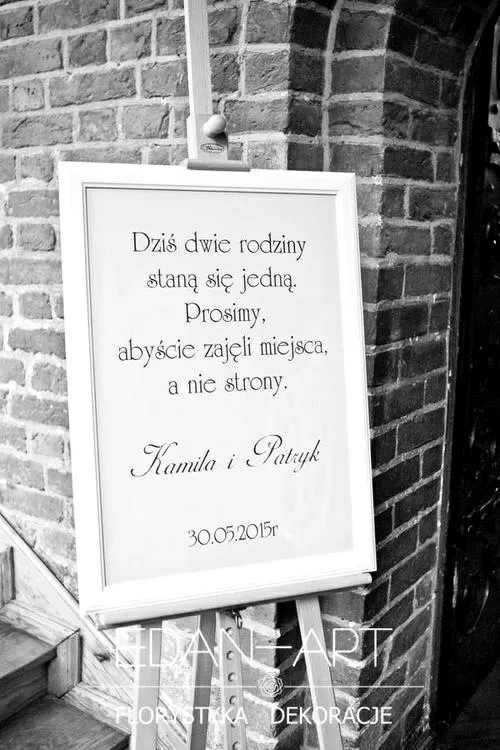 Dziś dwie rodziny
staną się jedną.
Prosimy,
abyście zajęli miejsca,
a nie strony.
Kamila i Patryk
30.05.2015r
EDAN-ART
FLORYSTYKA DEKORACJE